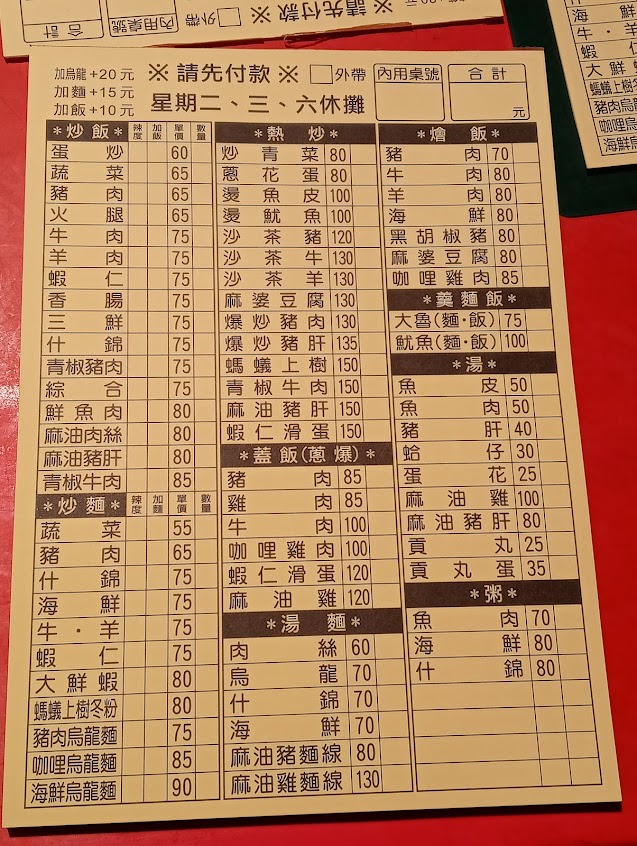 合計 內用桌號 外帶 ※請先付款※
加烏龍+20元
加麵+15元
加飯+10元
※ 請先付款 ※ 外帶
星期二、三、六休攤
內用桌號
合計
元
＊炒飯＊ 辣度 加飯 單價 數量
蛋炒 60
蔬菜 65
豬肉 65
火腿 65
牛肉 75
羊肉 75
蝦仁 75
香腸 75
三鮮 75
什錦 75
青椒豬肉 75
綜合 75
鮮魚肉 80
麻油肉絲 80
麻油豬肝 80
青椒牛肉 85
＊炒麵＊ 辣度 加麵 單價 數量
蔬菜 55
豬肉 65
什錦 75
海鮮 75
牛·羊 75
蝦仁 75
大鮮蝦 80
螞蟻上樹冬粉 80
豬肉烏龍麵 75
咖哩烏龍麵 85
海鮮烏龍麵 90
＊熱炒＊
炒青菜 80
蔥花蛋 80
燙魚皮 100
燙魷魚 100
沙茶豬 120
沙茶牛 130
沙茶羊 130
麻婆豆腐 130
爆炒豬肉 130
爆炒豬肝 135
螞蟻上樹 150
青椒牛肉 150
麻油豬肝 150
蝦仁滑蛋 150
＊蓋飯(蔥爆)＊
豬肉 85
雞肉 85
牛肉 100
咖哩雞肉 100
蝦仁滑蛋 120
麻油雞 120
＊湯麵＊
肉絲 60
烏龍 70
什錦 70
海鮮 70
麻油豬麵線 80
麻油雞麵線 130
＊燴飯＊
豬肉 70
牛肉 80
羊肉 80
海鮮 80
黑胡椒豬 80
麻婆豆腐 80
咖哩雞肉 85
＊羹麵飯＊
大魯(麵·飯) 75
魷魚(麵·飯) 100
＊湯＊
魚皮 50
魚肉 50
豬肝 40
蛤仔 30
蛋花 25
麻油雞 100
麻油豬肝 80
貢丸 25
貢丸蛋 35
＊粥＊
魚肉 70
海鮮 80
什錦 80
海鮮
牛·羊
蝦仁
大鮮蝦
螞蟻上樹冬
豬肉烏龍
咖哩烏龍
海鮮烏龍